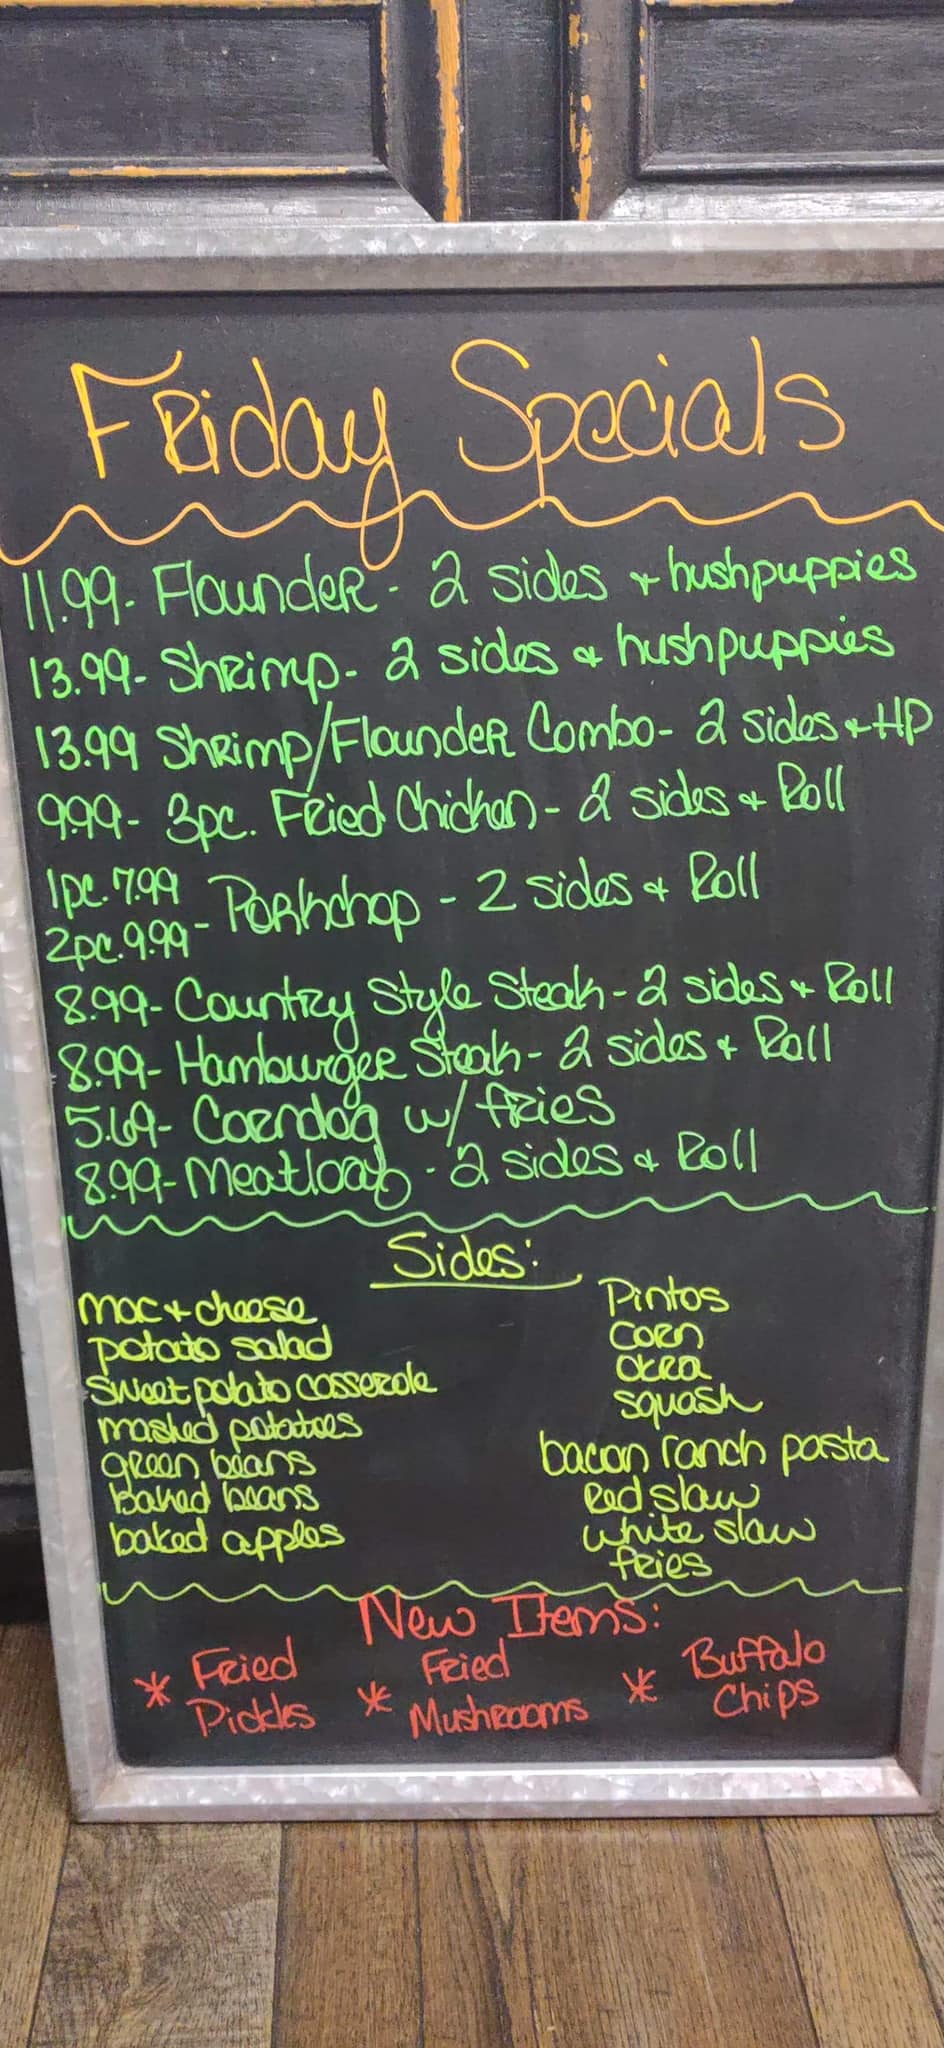 Friday Specials
11.99- Flounder - 2 sides + hushpuppies
13.99- Shrimp- 2 sides + hushpuppies
13.99 Shrimp/Flounder Combo- 2 sides + HP
9.99- 3pc. Fried Chicken - 2 sides + Roll
1pc. 7.99
2pc. 9.99 - Porkchop - 2 sides + Roll
8.99- Country Style Steak - 2 sides + Roll
8.99- Hamburger Steak- 2 sides + Roll
5.69- Corndog w/ fries
8.99- Meatloaf - 2 sides + Roll
Sides:
mac + cheese
potato salad
sweet potato casserole
mashed potatoes
green beans
Baked beans
baked apples
Pintos
corn
okra
squash
bacon ranch pasta
Red slaw
white slaw
fries
New Items:
* Fried Pickles
* Fried Mushrooms
* Buffalo Chips